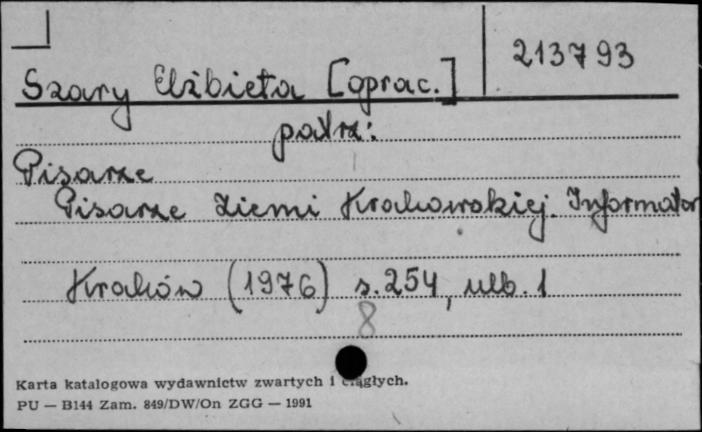 213793
Szary Elżbieta [oprac.]
patrz:
Pisarze
Pisarze Ziemi Krakowskiej. Informator
Kraków (1976) s. 254, nlb. 1
8
Karta katalogowa wydawnictw zwartych i ciągłych.
PU — B144 Zam. 849/DW/On ZGG — 1991